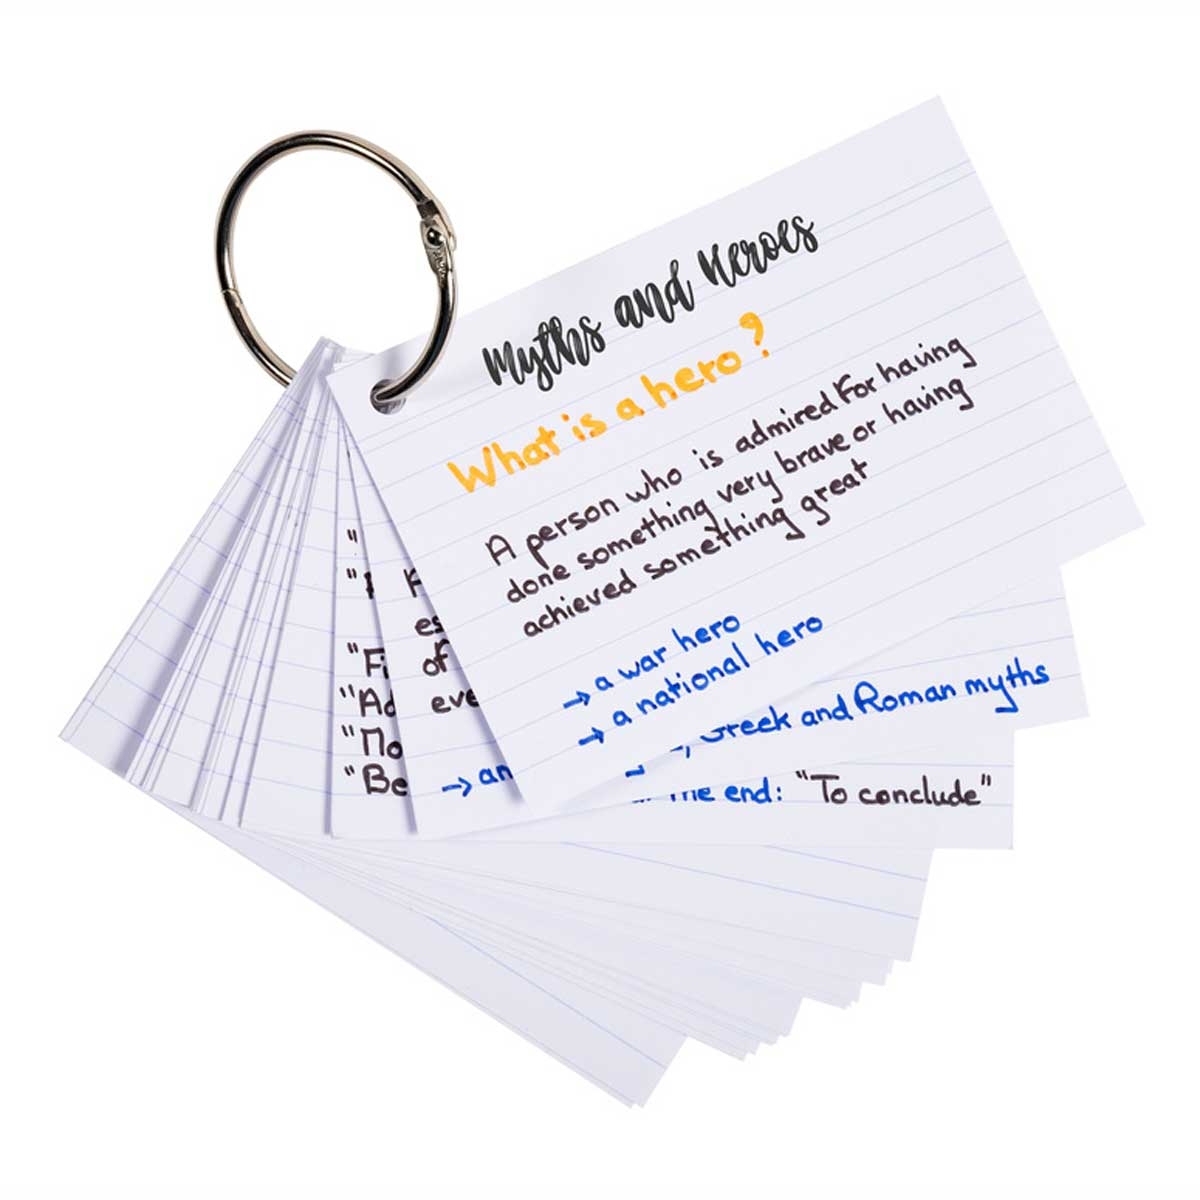 Myths and Heroes
What is a hero?
A person who is admired for having
done something very brave or having
achieved something great
→ a war hero
→ a national hero
Greek and Roman myths
→ an
the end: "To conclude"
es
of
"
"
"Fi
"Ad
"No
"Be